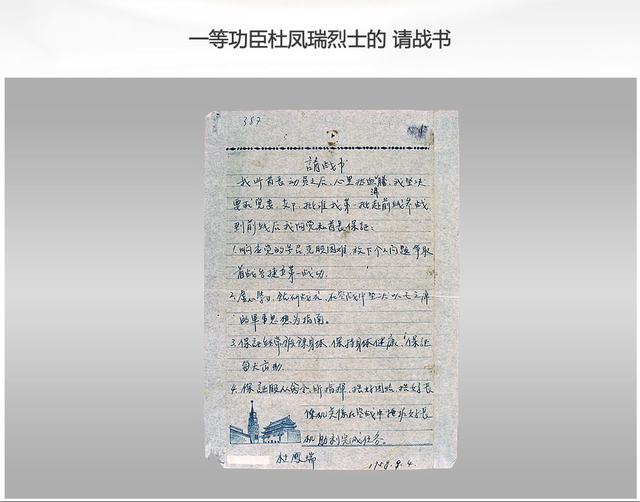 一等功臣杜凤瑞烈士的 请战书
387
請战书
我听首长动员之后，心里热血沸腾，我坚决
要求党委 支下 批准我第一批赴前线参战
到前线后我向党和首长保证：
1.响应党的号召克服困难，放下个人问题 争取
首战告捷立第一战功。
2.虚心学习，钻研战术，在空战中坚决以毛主席
的军事思想为指南。
3.保证经常锻錬身体，保持身体健康，保证
每天出勤。
4.保证服从命令，听指挥，搞好团结，
僚机关係在空战中掩护好长
机胜利完成任务。
杜鳳瑞
1958.9.4.